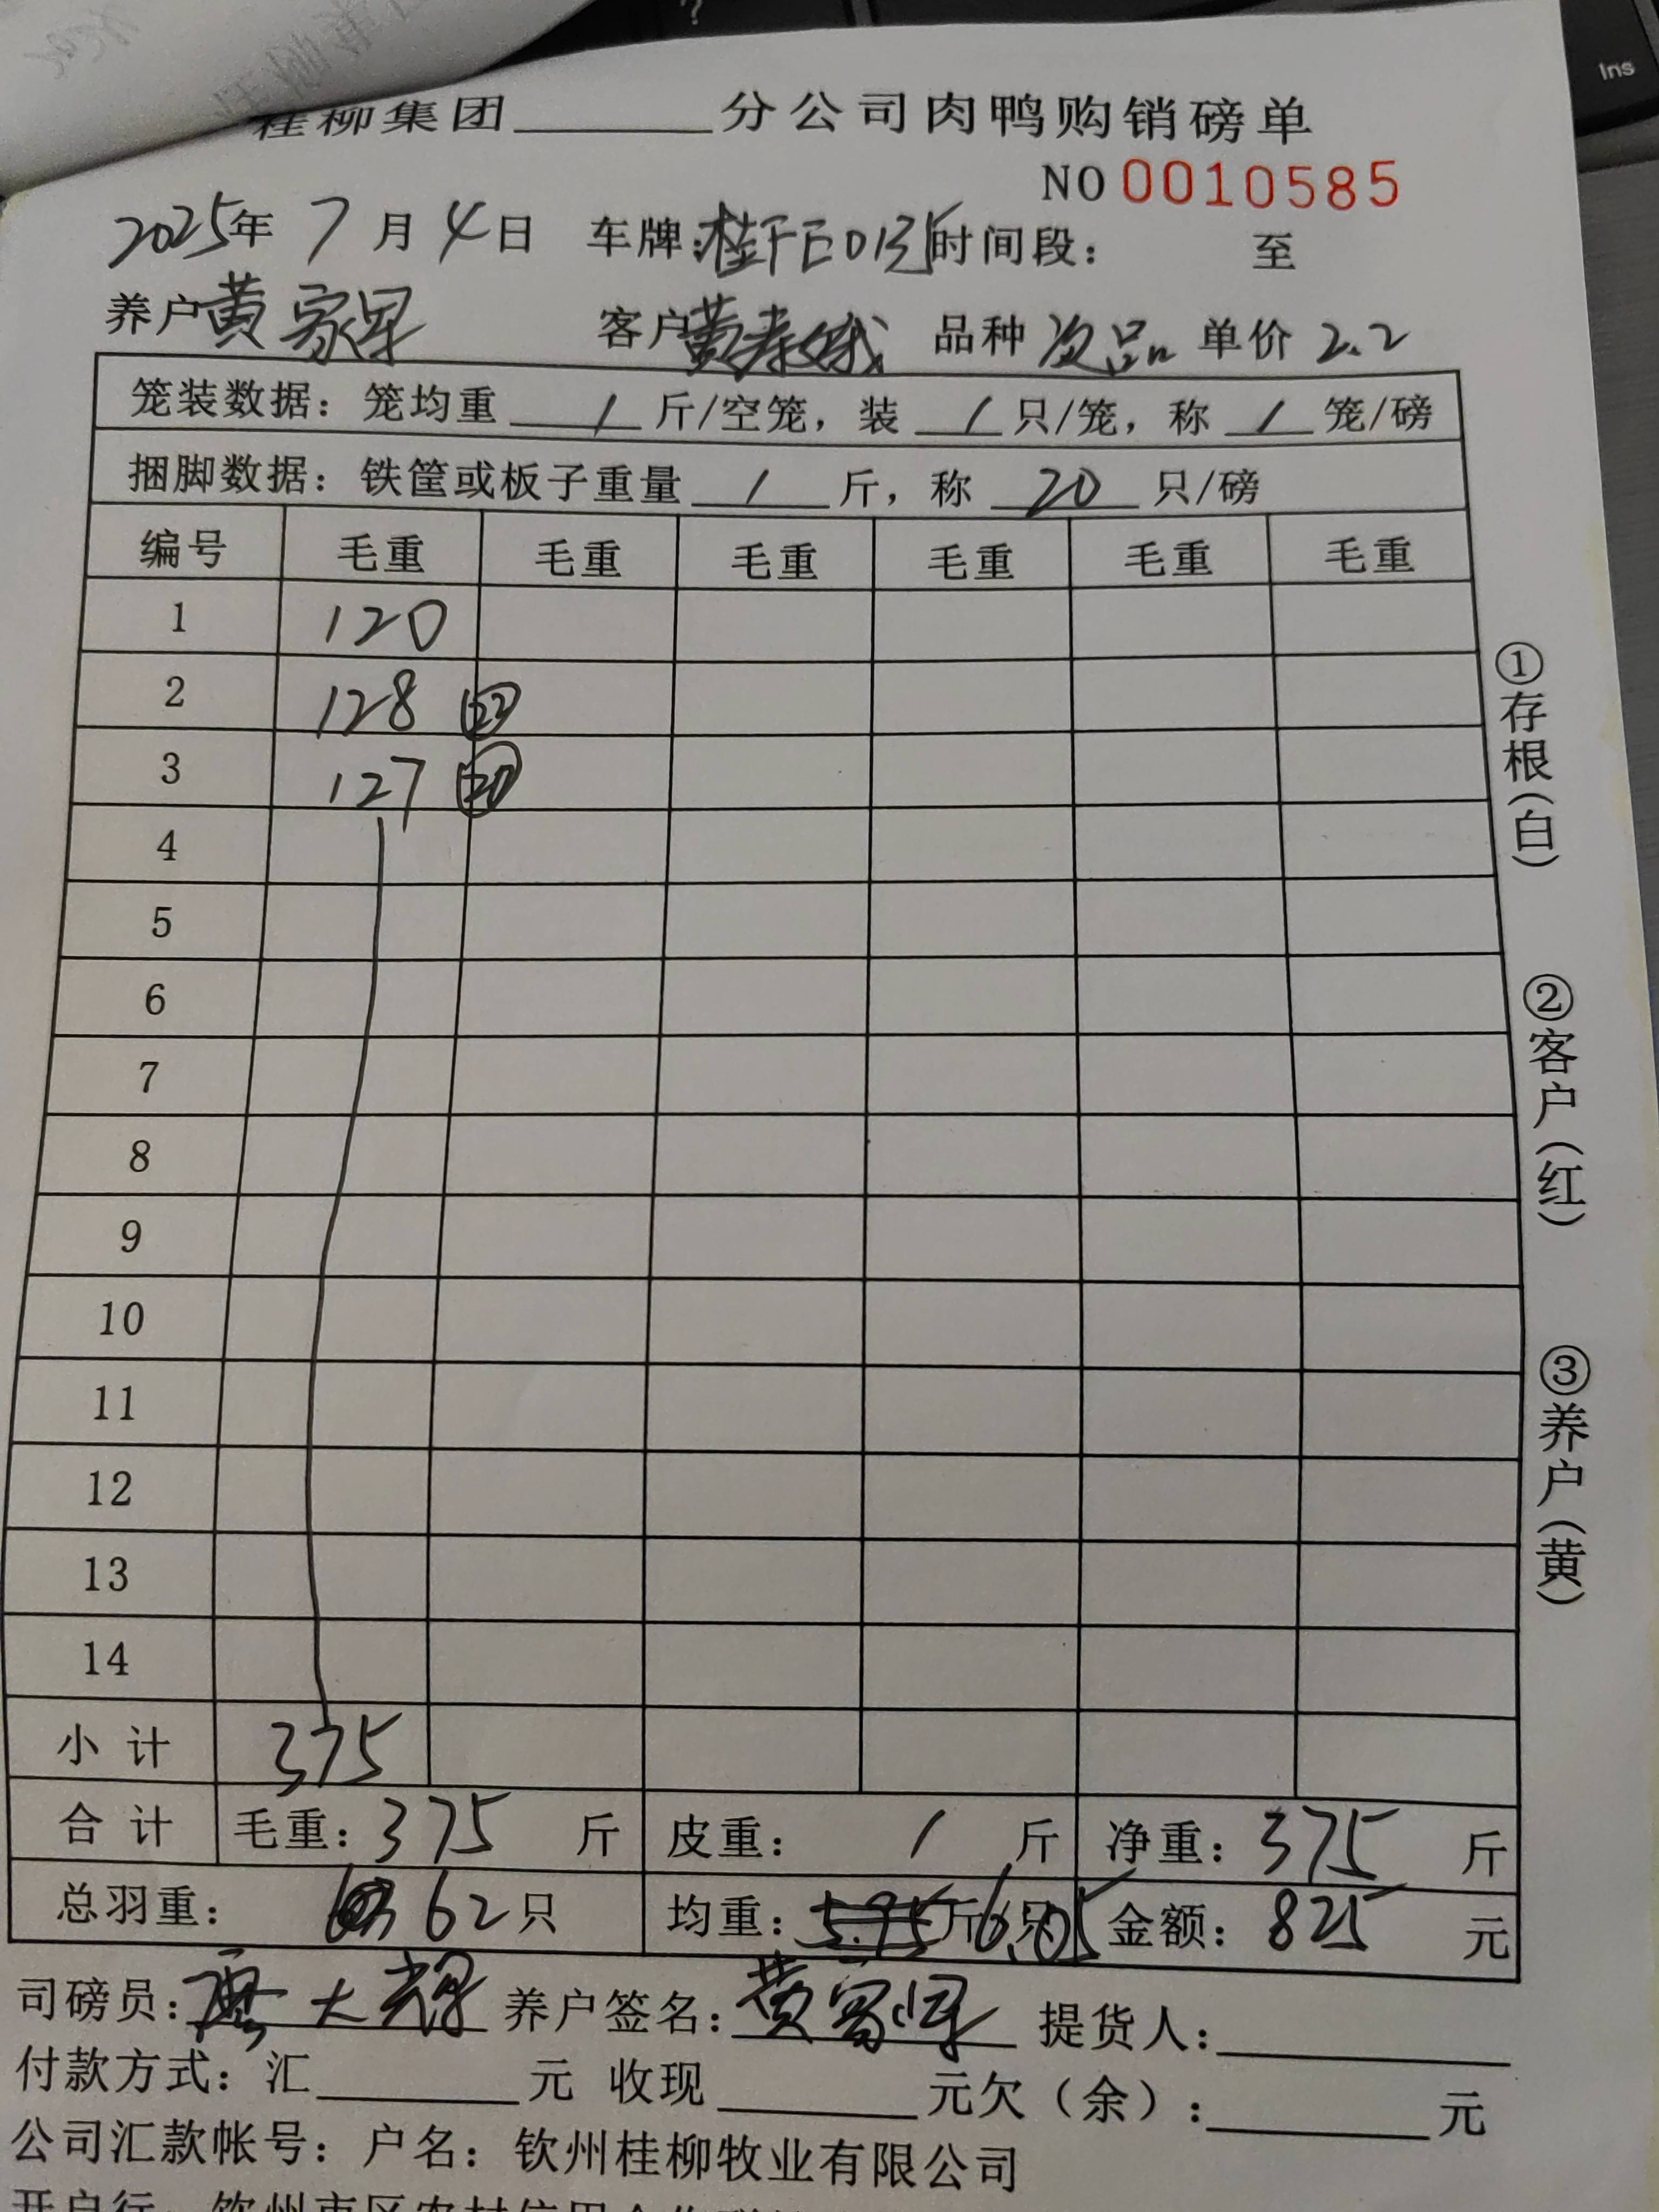 桂柳集团______分公司肉鸭购销磅单
NO 0010585
2025年 7月 4日 车牌: 时间段: 至
养户 黄家 客户 黄 品种 次品 单价 2.2
笼装数据: 笼均重 / 斤/空笼, 装 / 只/笼, 称 / 笼/磅
捆脚数据: 铁筐或板子重量 / 斤, 称 20 只/磅
编号 毛重 毛重 毛重 毛重 毛重 毛重
1 120
2 128 22
3 127 20
4
5
6
7
8
9
10
11
12
13
14
小计 375
合计 毛重: 375 斤 皮重: / 斤 净重: 375 斤
总羽重: 62只 均重: 5.95 斤/只 6.05 金额: 825 元
司磅员: 大辉 养户签名: 黄 提货人:
付款方式: 汇______元 收现______元欠(余):______元
公司汇款帐号: 户名: 钦州桂柳牧业有限公司
①存根(白)
②客户(红)
③养户(黄)
Ins